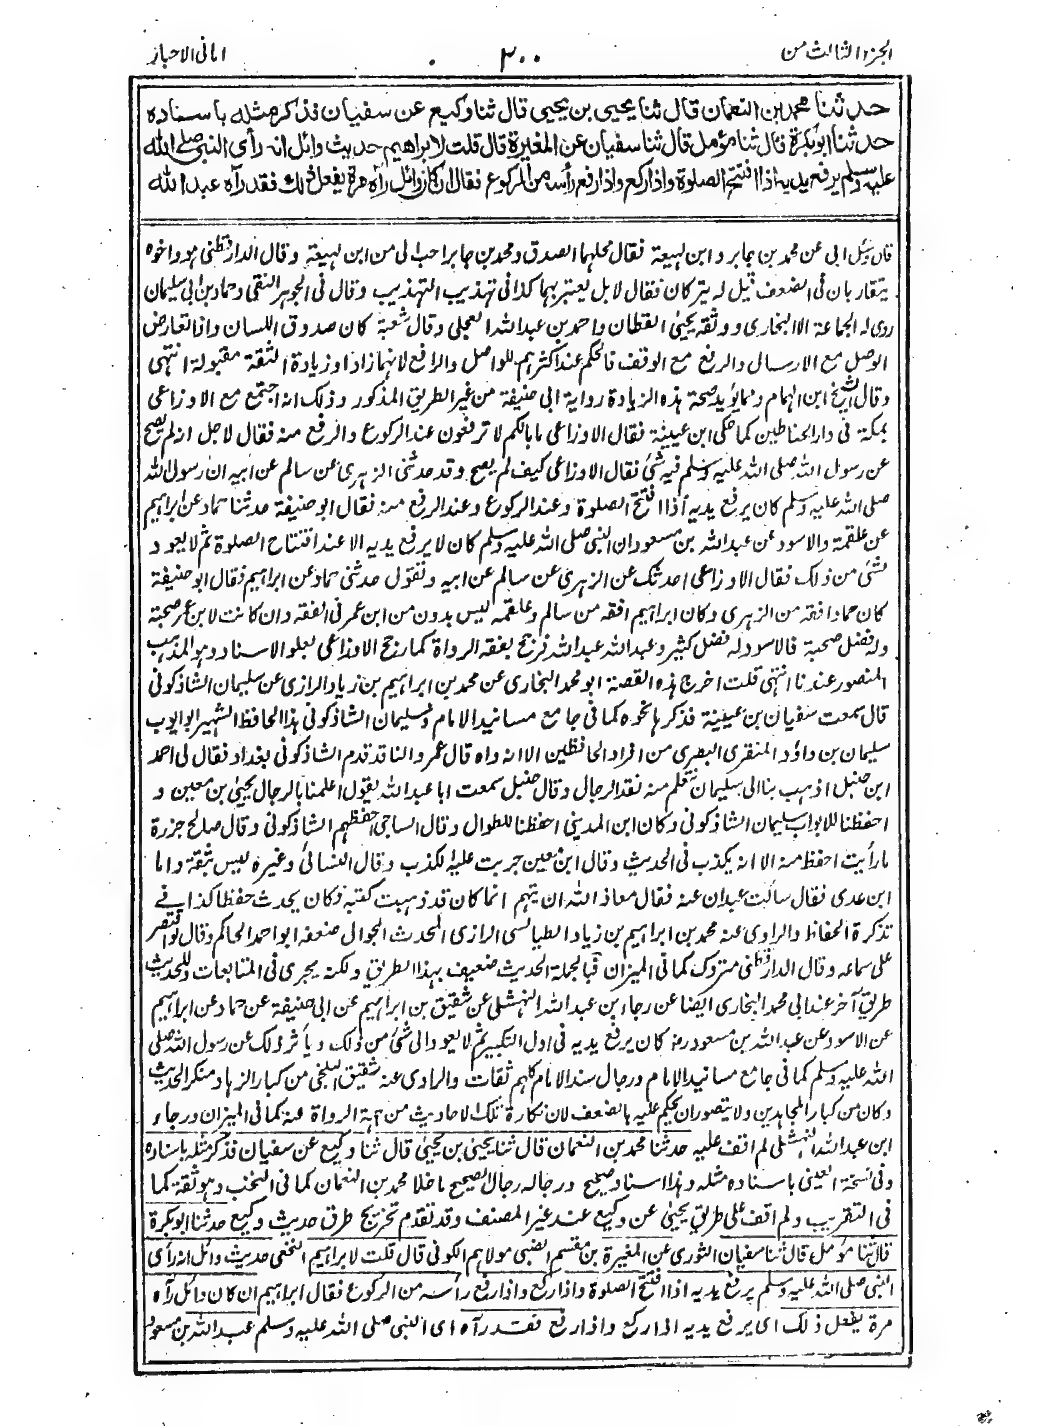 الجزء الثالث من
٢٠٠
امانی الاحبار
حدثنا محمد بن النعمان قال ثنا يحيى بن يحيى قال ثنا وكيع عن سفيان فذكر مثله باسناده
حدثنا ابوبكرة قال ثنا مؤمل قال ثنا سفيان عن المغيرة قال قلت لابراهيم حديث وائل انه رأى النبي صلى الله
عليه وسلم يرفع يديه اذا افتتح الصلوة واذا ركع واذا رفع رأسه من الركوع فقال ان كان وائل رآه مرة يفعل ذلك فقد رآه عبد الله
قال سئل ابی عن محمد بن جابر و ابن لہیعة فقال محلہما الصدق و محمد بن جابر احب الی من ابن لہیعة وقال الدارقطنی ہو واخوہ
یتقاربان فی الضعف قیل له یترکان فقال لا بل یعتبر بہما کذا فی تہذیب التہذیب وقال فی الجوہر النقی وحماد بن ابی سلیمان
روی له الجماعة الا البخاری و وثقه یحییٰ القطان واحمد بن عبد الله العجلی وقال شعبة کان صدوق اللسان واذا تعارض
الوصل مع الارسال والرفع مع الوقف فالحکم عند اکثرہم للواصل والرافع لانہما زادا و زیادة الثقة مقبولة انتہی
وقال الشیخ ابن الہمام ومما یؤید صحة ہذه الزیادة روایة ابی حنیفة من غیر الطریق المذکور و ذلک انه اجتمع مع الاوزاعی
بمکة فی دار الحناطین کما حکی ابن عیینة فقال الاوزاعی ما بالکم لا ترفعون عند الرکوع والرفع منه فقال لاجل انه لم یصح
عن رسول الله صلی الله علیه وسلم فیه شئ فقال الاوزاعی کیف لم یصح وقد حدثنی الزہری عن سالم عن ابیه ان رسول الله
صلی الله علیه وسلم کان یرفع یدیه اذا افتتح الصلوة وعند الرکوع وعند الرفع منه فقال ابو حنیفة حدثنا حماد عن ابراہیم
عن علقمة والاسود عن عبد الله بن مسعود ان النبی صلی الله علیه وسلم کان لا یرفع یدیه الا عند افتتاح الصلوة ثم لا یعود
لشئ من ذلک فقال الاوزاعی احدثک عن الزہری عن سالم عن ابیه وتقول حدثنی حماد عن ابراہیم فقال ابو حنیفة
کان حماد افقه من الزہری وکان ابراہیم افقه من سالم وعلقمة لیس بدون من ابن عمر فی الفقه وان کانت لابن عمر صحبة
وله فضل صحبة فالاسود له فضل کثیر وعبد الله عبد الله فرجح بفقه الرواة کما رجح الاوزاعی بعلو الاسناد وہو المذہب
المنصور عندنا انتہی قلت اخرج ہذه القصة ابو محمد البخاری عن محمد بن ابراہیم بن زیاد الرازی عن سلیمان الشاذکونی
قال سمعت سفیان بن عیینة فذکر نحوه کما فی جامع مسانید الامام وسلیمان الشاذکونی ہذا الحافظ الشہیر ابو ایوب
سلیمان بن داؤد المنقری البصری من افراد الحافظین الا انه واه قال عمرو الناقد قدم الشاذکونی بغداد فقال لی احمد
ابن حنبل اذہب بنا الی سلیمان نتعلم منه نقد الرجال وقال حنبل سمعت ابا عبد الله یقول اعلمنا بالرجال یحییٰ بن معین و
احفظنا للابواب سلیمان الشاذکونی وکان ابن المدینی احفظنا للطوال وقال الساجی احفظہم الشاذکونی وقال صالح جزرة
ما رأیت احفظ منه الا انه یکذب فی الحدیث وقال ابن معین جربت علیه الکذب وقال النسائی وغیره لیس بثقة واما
ابن عدی فقال سألت عبدان عنه فقال معاذ الله ان یتہم انما کان قد ذہبت کتبه فکان یحدث حفظا کذا فی
تذکرة الحفاظ والراوی عنه محمد بن ابراہیم بن زیاد الطیالسی الرازی المحدث الجوال ضعفه ابو احمد الحاکم وقال لو اقتصر
علی سماعه وقال الدارقطنی متروک کما فی المیزان فبالجملة الحدیث ضعیف بہذا الطریق ولکنه یجری فی المتابعات وللحدیث
طریق آخر عند ابی محمد البخاری ایضا عن رجاء بن عبد الله النہشلی عن شقیق بن ابراہیم عن ابی حنیفة عن حماد عن ابراہیم
عن الاسود عن عبد الله بن مسعود رض کان یرفع یدیه فی اول التکبیر ثم لا یعود الی شئ من ذلک و یأثر ذلک عن رسول الله صلی
الله علیه وسلم کما فی جامع مسانید الامام ورجال سند الامام کلہم ثقات والراوی عنه شقیق البلخی من کبار الزہاد منکر الحدیث
وکان من کبار المجاہدین ولا یتصور ان یحکم علیه بالضعف لان نکارة تلک الاحادیث من جہة الرواة عنه کما فی المیزان ورجاء
ابن عبد الله النہشلی لم اقف علیه حدثنا محمد بن النعمان قال ثنا یحییٰ بن یحییٰ قال ثنا وکیع عن سفیان فذکر مثله باسناده
وفی نسخة العینی باسناده مثله وہذا اسناد صحیح ورجاله رجال الصحیح ما خلا محمد بن النعمان کما فی النخب وہو ثقة کما
فی التقریب ولم اقف علی طریق یحییٰ عن وکیع عند غیر المصنف وقد تقدم تخریج طرق حدیث وکیع حدثنا ابوبکرة
قال ثنا مؤمل قال ثنا سفیان الثوری عن المغیرة بن مقسم الضبی مولاہم الکوفی قال قلت لابراہیم النخعی حدیث وائل انه رأی
النبی صلی الله علیه وسلم یرفع یدیه اذا افتتح الصلوة واذا رکع واذا رفع رأسه من الرکوع فقال ابراہیم ان کان وائل رآه
مرة یفعل ذلک ای یرفع یدیه اذا رکع واذا رفع فقد رآه ای النبی صلی الله علیه وسلم عبد الله بن مسعود